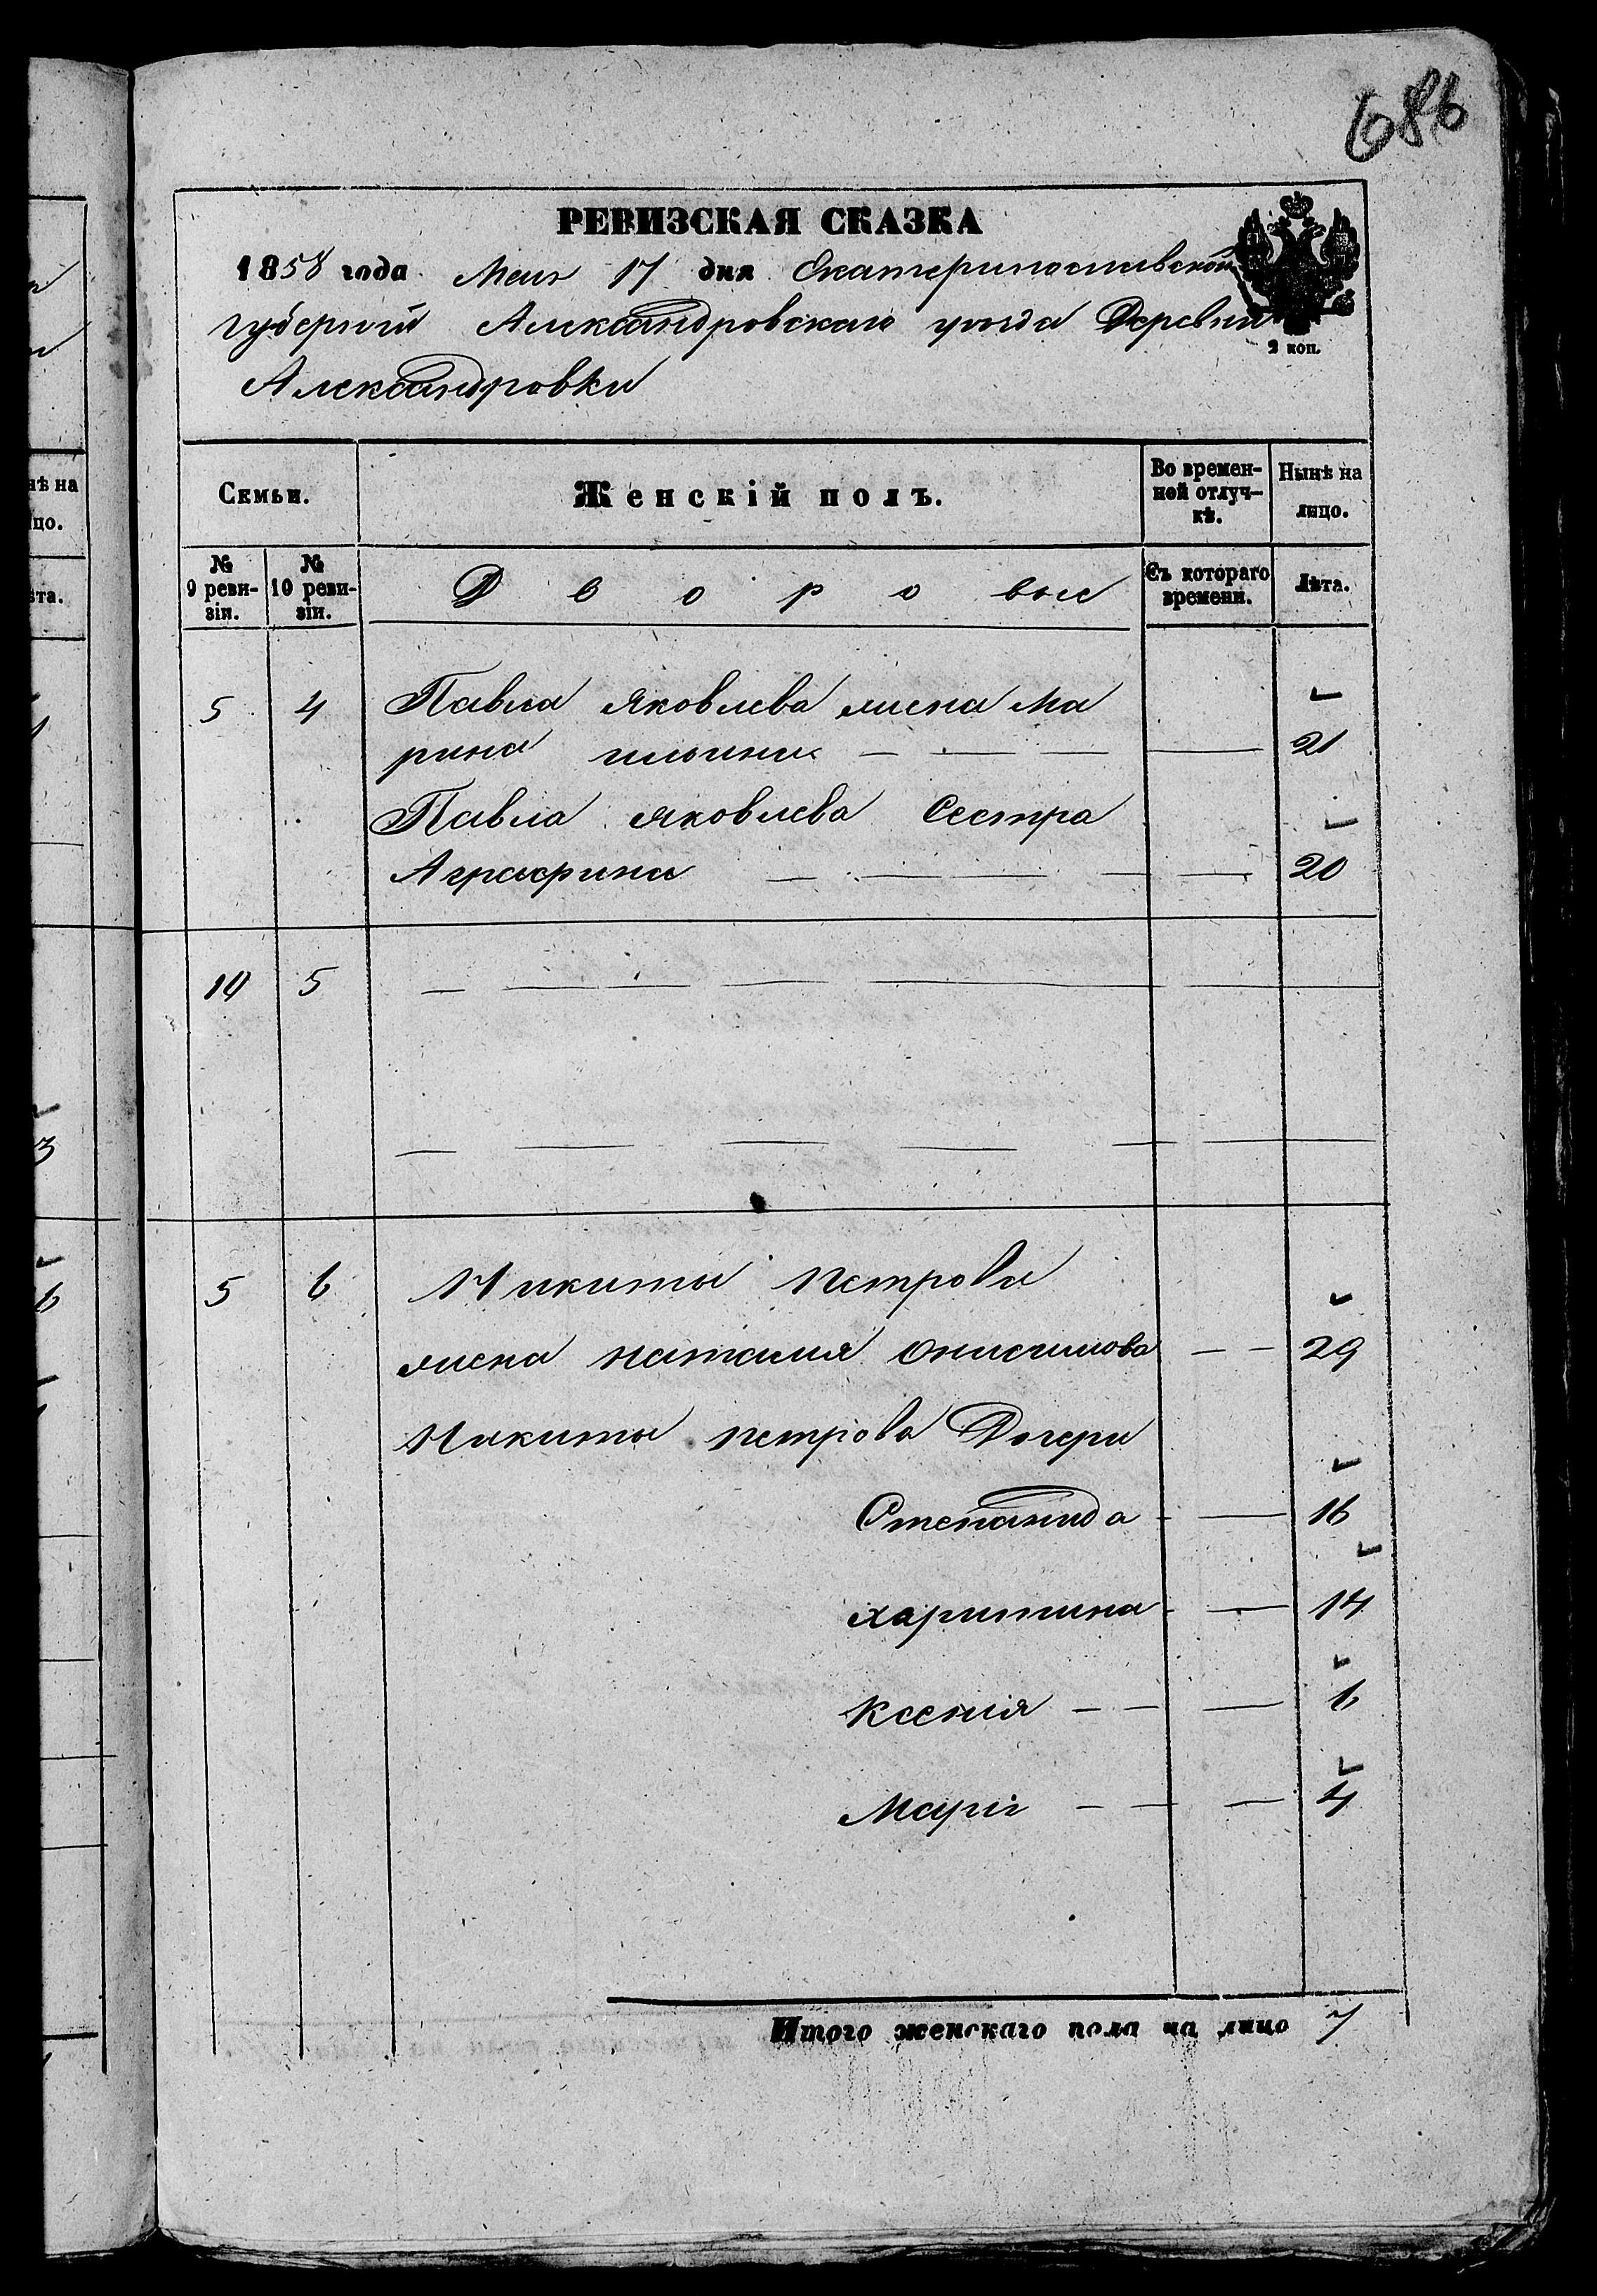 686
РЕВИЗСКАЯ СКАЗКА
1858 года Мая 17 дня Екатеринославской
губерніи Александровскаго уѣзда Деревни
Александровки
2 коп.
Семьи.
Женскій полъ.
Во времен-
ной отлуч-
кѣ.
Нынѣ на
лицо.
№
9 реви-
зіи.
№
10 реви-
зіи.
Дворовые
Съ котораго
времени.
Лѣта.
5 4 Павла Яковлева жена Ма
рина ильина — — — — 21
Павла яковлева Сестра
Аграфина — — — — — 20
10 5 — — — — —
— — — — — —
5 6 Никиты петрова
жена наталия Онисимова — — 29
Никиты петрова Дочери
Степанида — — 16
харитина — — 14
Ксенія — — — 6
Марія — — — 4
Итого женскаго пола на лицо 7
нѣ на
цо.
ѣта.
3
6